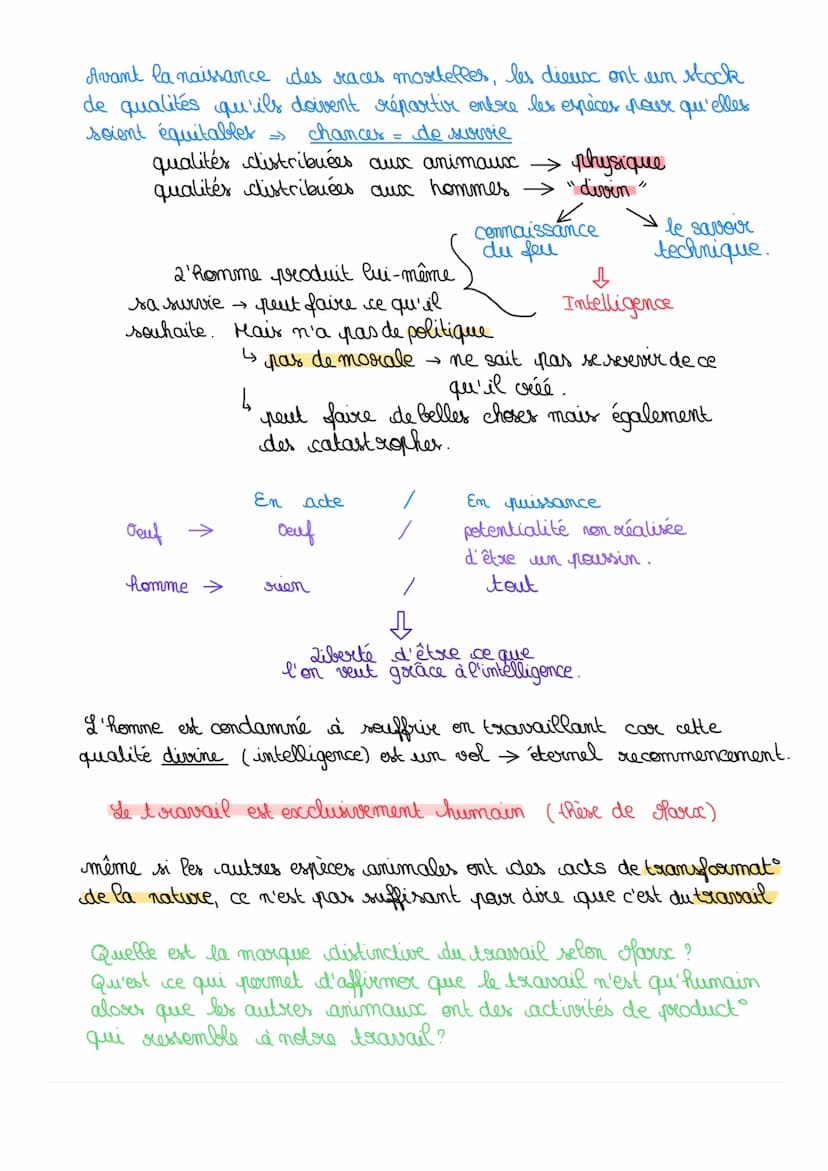 Avant la naissance des races mortelles, les dieux ont un stock
de qualités qu'ils doivent répartir entre les espèces pour qu'elles
soient équitables ⇒ chances = de survie
qualités distribuées aux animaux → physique
qualités distribuées aux hommes → "divin"
connaissance
du feu
le savoir
technique.
⇓
Intelligence
L'homme produit lui-même
sa survie → peut faire ce qu'il
souhaite. Mais n'a pas de politique
↳ pas de morale → ne sait pas se servir de ce
qu'il créé.
↳ peut faire de belles choses mais également
des catastrophes.
En acte / En puissance
Oeuf → Oeuf / potentialité non réalisée
d'être un poussin.
homme → rien / tout
⇓
Liberté d'être ce que
l'on veut grâce à l'intelligence.
L'homme est condamné à souffrir en travaillant car cette
qualité divine (intelligence) est un vol → éternel recommencement.
Le travail est exclusivement humain (thèse de Marx)
même si les autres espèces animales ont des acts de transformat°
de la nature, ce n'est pas suffisant pour dire que c'est du travail
Quelle est la marque distinctive du travail selon Marx ?
Qu'est ce qui permet d'affirmer que le travail n'est qu'humain
alors que les autres animaux ont des activités de product°
qui ressemble à notre travail ?